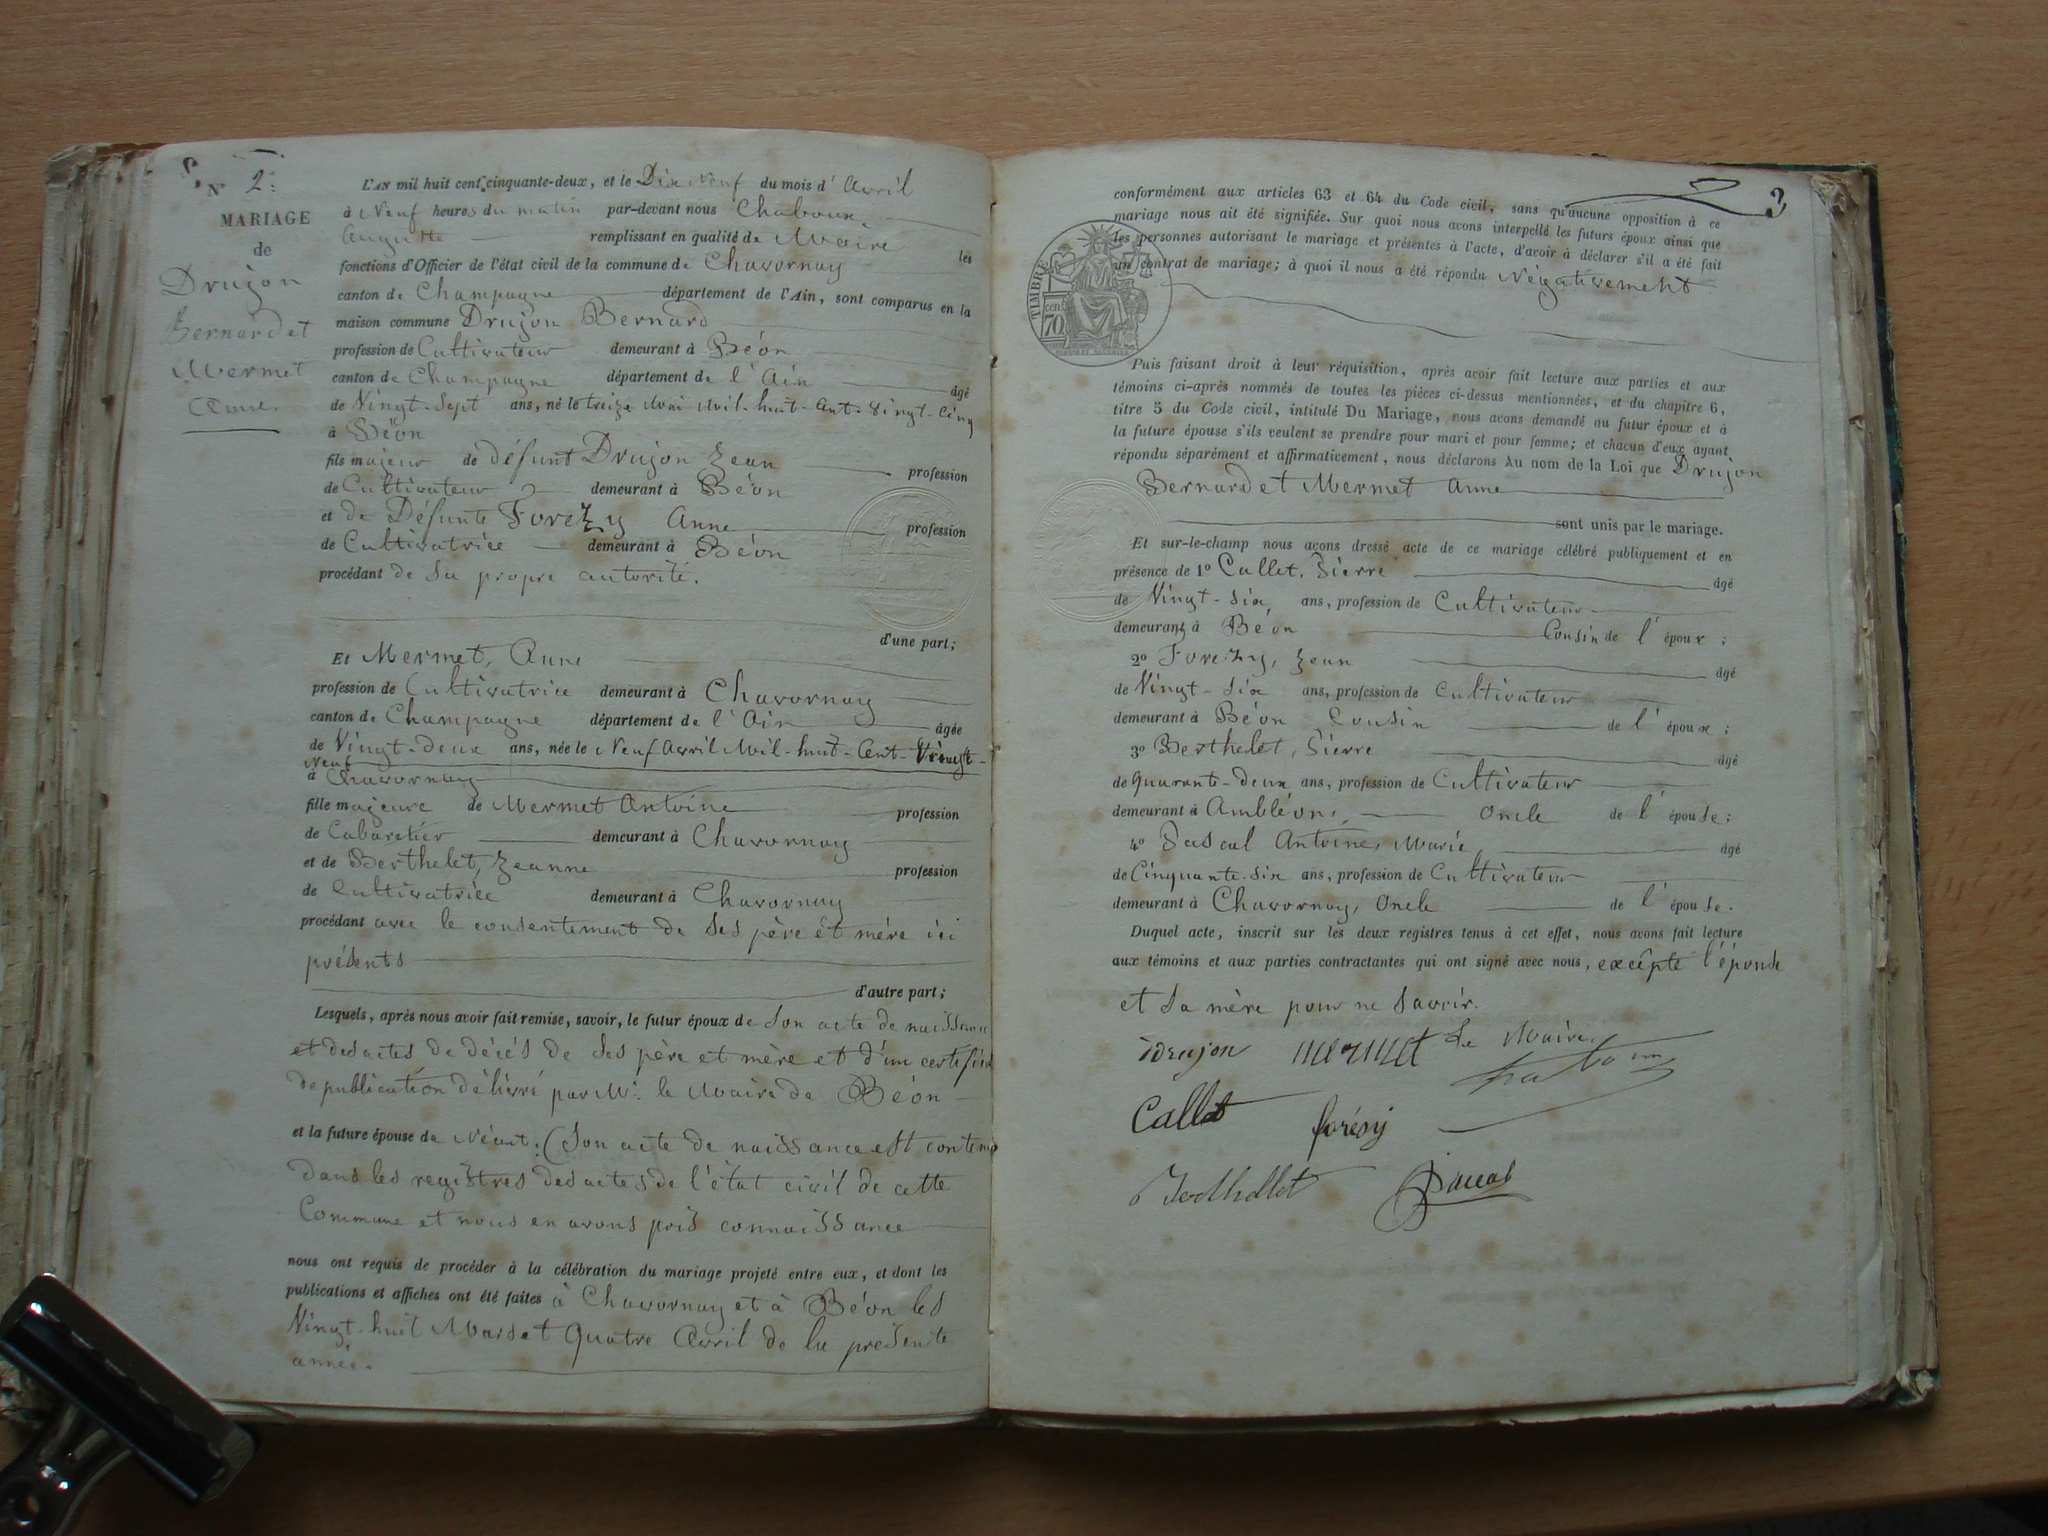 N° 2.
MARIAGE
de
Drujon
Bernard et
Mermet
Anne.
L'AN mil huit cent cinquante-deux, et le Dix Neuf du mois d'Avril
à Neuf heures du matin par-devant nous Chaboux
Auguste remplissant en qualité de Maire les
fonctions d'Officier de l'état civil de la commune de Chavornay
canton de Champagne département de l'Ain, sont comparus en la
maison commune Drujon Bernard
profession de Cultivateur demeurant à Béon
canton de Champagne département de l'Ain âgé
de Vingt-Sept ans, né le treize Mai Mil-huit-Cent-Vingt-Cinq
à Béon
fils majeur de défunt Drujon Jean profession
de Cultivateur demeurant à Béon
et de Défunte Forezy Anne profession
de Cultivatrice demeurant à Béon
procédant de sa propre autorité.
d'une part;
Et Mermet, Anne
profession de Cultivatrice demeurant à Chavornay
canton de Champagne département de l'Ain âgée
de Vingt-deux ans, née le Neuf Avril Mil-huit-Cent-Vingt-
Neuf
à Chavornay
fille majeure de Mermet Antoine profession
de Cabaretier demeurant à Chavornay
et de Berthelet, Jeanne profession
de Cultivatrice demeurant à Chavornay
procédant avec le consentement de ses père et mère ici
présents
d'autre part;
Lesquels, après nous avoir fait remise, savoir, le futur époux de son acte de naissance
et des actes de décés de ses père et mère et d'un certificat
de publication délivré par Mr. le Maire de Béon
et la future épouse de Néant. (Son acte de naissance est contenu
dans les registres des actes de l'état civil de cette
Commune et nous en avons pris connaissance
nous ont requis de procéder à la célébration du mariage projeté entre eux, et dont les
publications et affiches ont été faites à Chavornay et à Béon les
Vingt-huit Mars et Quatre Avril de la présente
année.
3
conformément aux articles 63 et 64 du Code civil, sans qu'aucune opposition à ce
mariage nous ait été signifiée. Sur quoi nous avons interpellé les futurs époux ainsi que
les personnes autorisant le mariage et présentes à l'acte, d'avoir à déclarer s'il a été fait
un contrat de mariage; à quoi il nous a été répondu Négativement
TIMBRE
70 cent
Puis faisant droit à leur réquisition, après avoir fait lecture aux parties et aux
témoins ci-après nommés de toutes les pièces ci-dessus mentionnées, et du chapitre 6,
titre 5 du Code civil, intitulé Du Mariage, nous avons demandé au futur époux et à
la future épouse s'ils veulent se prendre pour mari et pour femme; et chacun d'eux ayant
répondu séparément et affirmativement, nous déclarons Au nom de la Loi que Drujon
Bernard et Mermet Anne
sont unis par le mariage.
Et sur-le-champ nous avons dressé acte de ce mariage célébré publiquement et en
présence de 1° Callet, Pierre âgé
de Vingt-Six, ans, profession de Cultivateur
demeurant à Béon Cousin de l'époux;
2° Forezy, Jean âgé
de Vingt-Six ans, profession de Cultivateur
demeurant à Béon Cousin de l'époux;
3° Berthelet, Pierre âgé
de Quarante-deux ans, profession de Cultivateur
demeurant à Ambléon, Oncle de l'épouse;
4° Pascal Antoine, Marie, âgé
de Cinquante-six ans, profession de Cultivateur
demeurant à Chavornay, Oncle de l'épouse.
Duquel acte, inscrit sur les deux registres tenus à cet effet, nous avons fait lecture
aux témoins et aux parties contractantes qui ont signé avec nous, excêpté l'épouse
et sa mère pour ne savoir.
Drujon mermet Le Maire,
Chaboux
Callet forésy
Berthellet Pascal